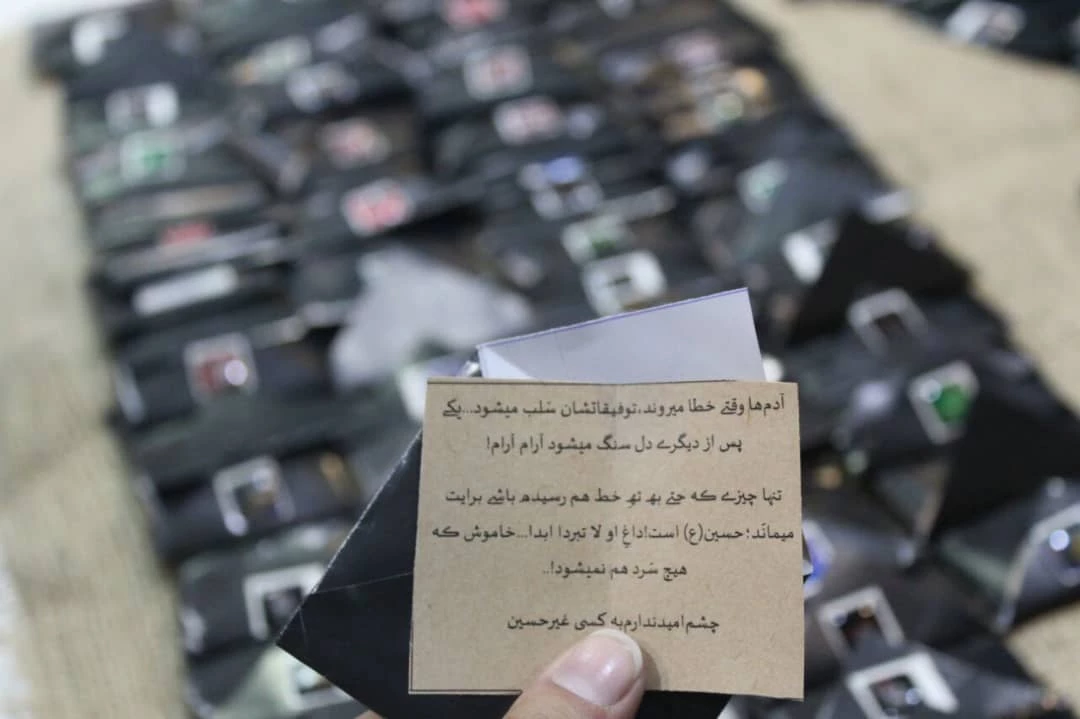 آدم‌ها وقتے خطا میروند،توفیقاتشان سَلب میشود...یکے
پس از دیگرے دل سنگ میشود آرام آرام!
تنها چیزے که حتے بهِ تهِ خط هم رسیده باشے برایت
میمانَد؛حسین(ع) است!داغِ او لا تبردا ابدا...خاموش که
هیچ سَرد هم نمیشود!..
چشم امیدندارم به کسی غیرحسین